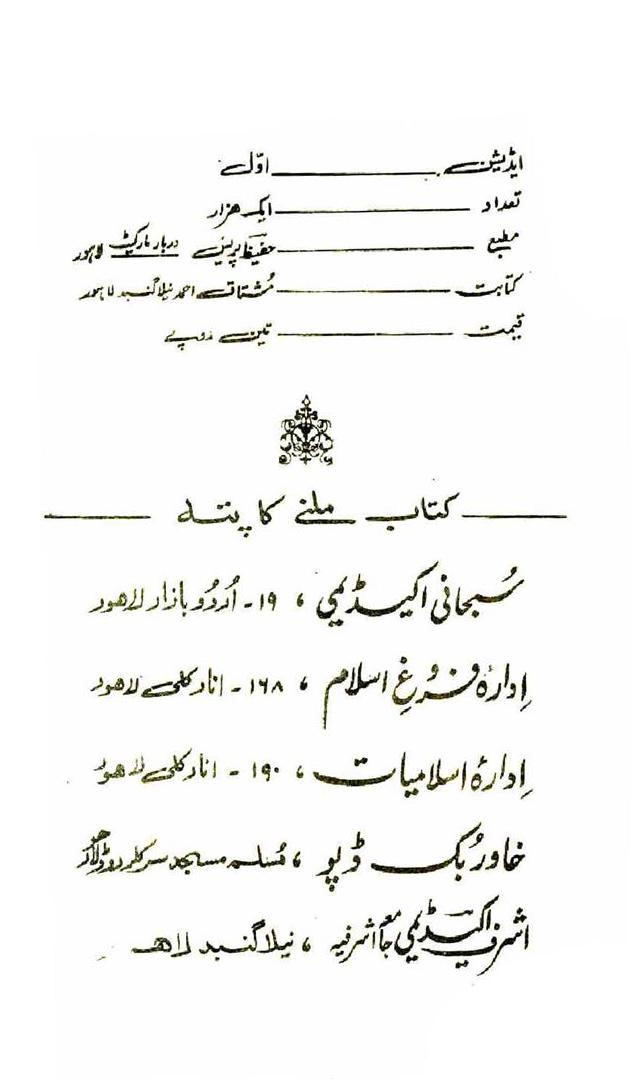 ایڈیشن ـــــــ اوّل
تعداد ـــــــ ایک ہزار
مطبع ـــــــ حفیظ پریس دربار مارکیٹ لاہور
کتابت ـــــــ مُشتاق احمد نیلا گنبد لاہور
قیمت ـــــــ تین روپے
کتاب ملنے کا پتہ
سُبحانی اکیڈیمی ، ۱۹ - اُردو بازار لاہور
اِدارۂ فروغِ اسلام ، ۱۶۸ - انار کلی لاہور
اِدارۂ اسلامیات ، ۱۹۰ - انار کلی لاہور
خاور بُک ڈپو ، مُسلم مسجد سرکلر روڈ لاہور
اشرف اکیڈیمی جامعہ اشرفیہ ، نیلا گنبد لاہ